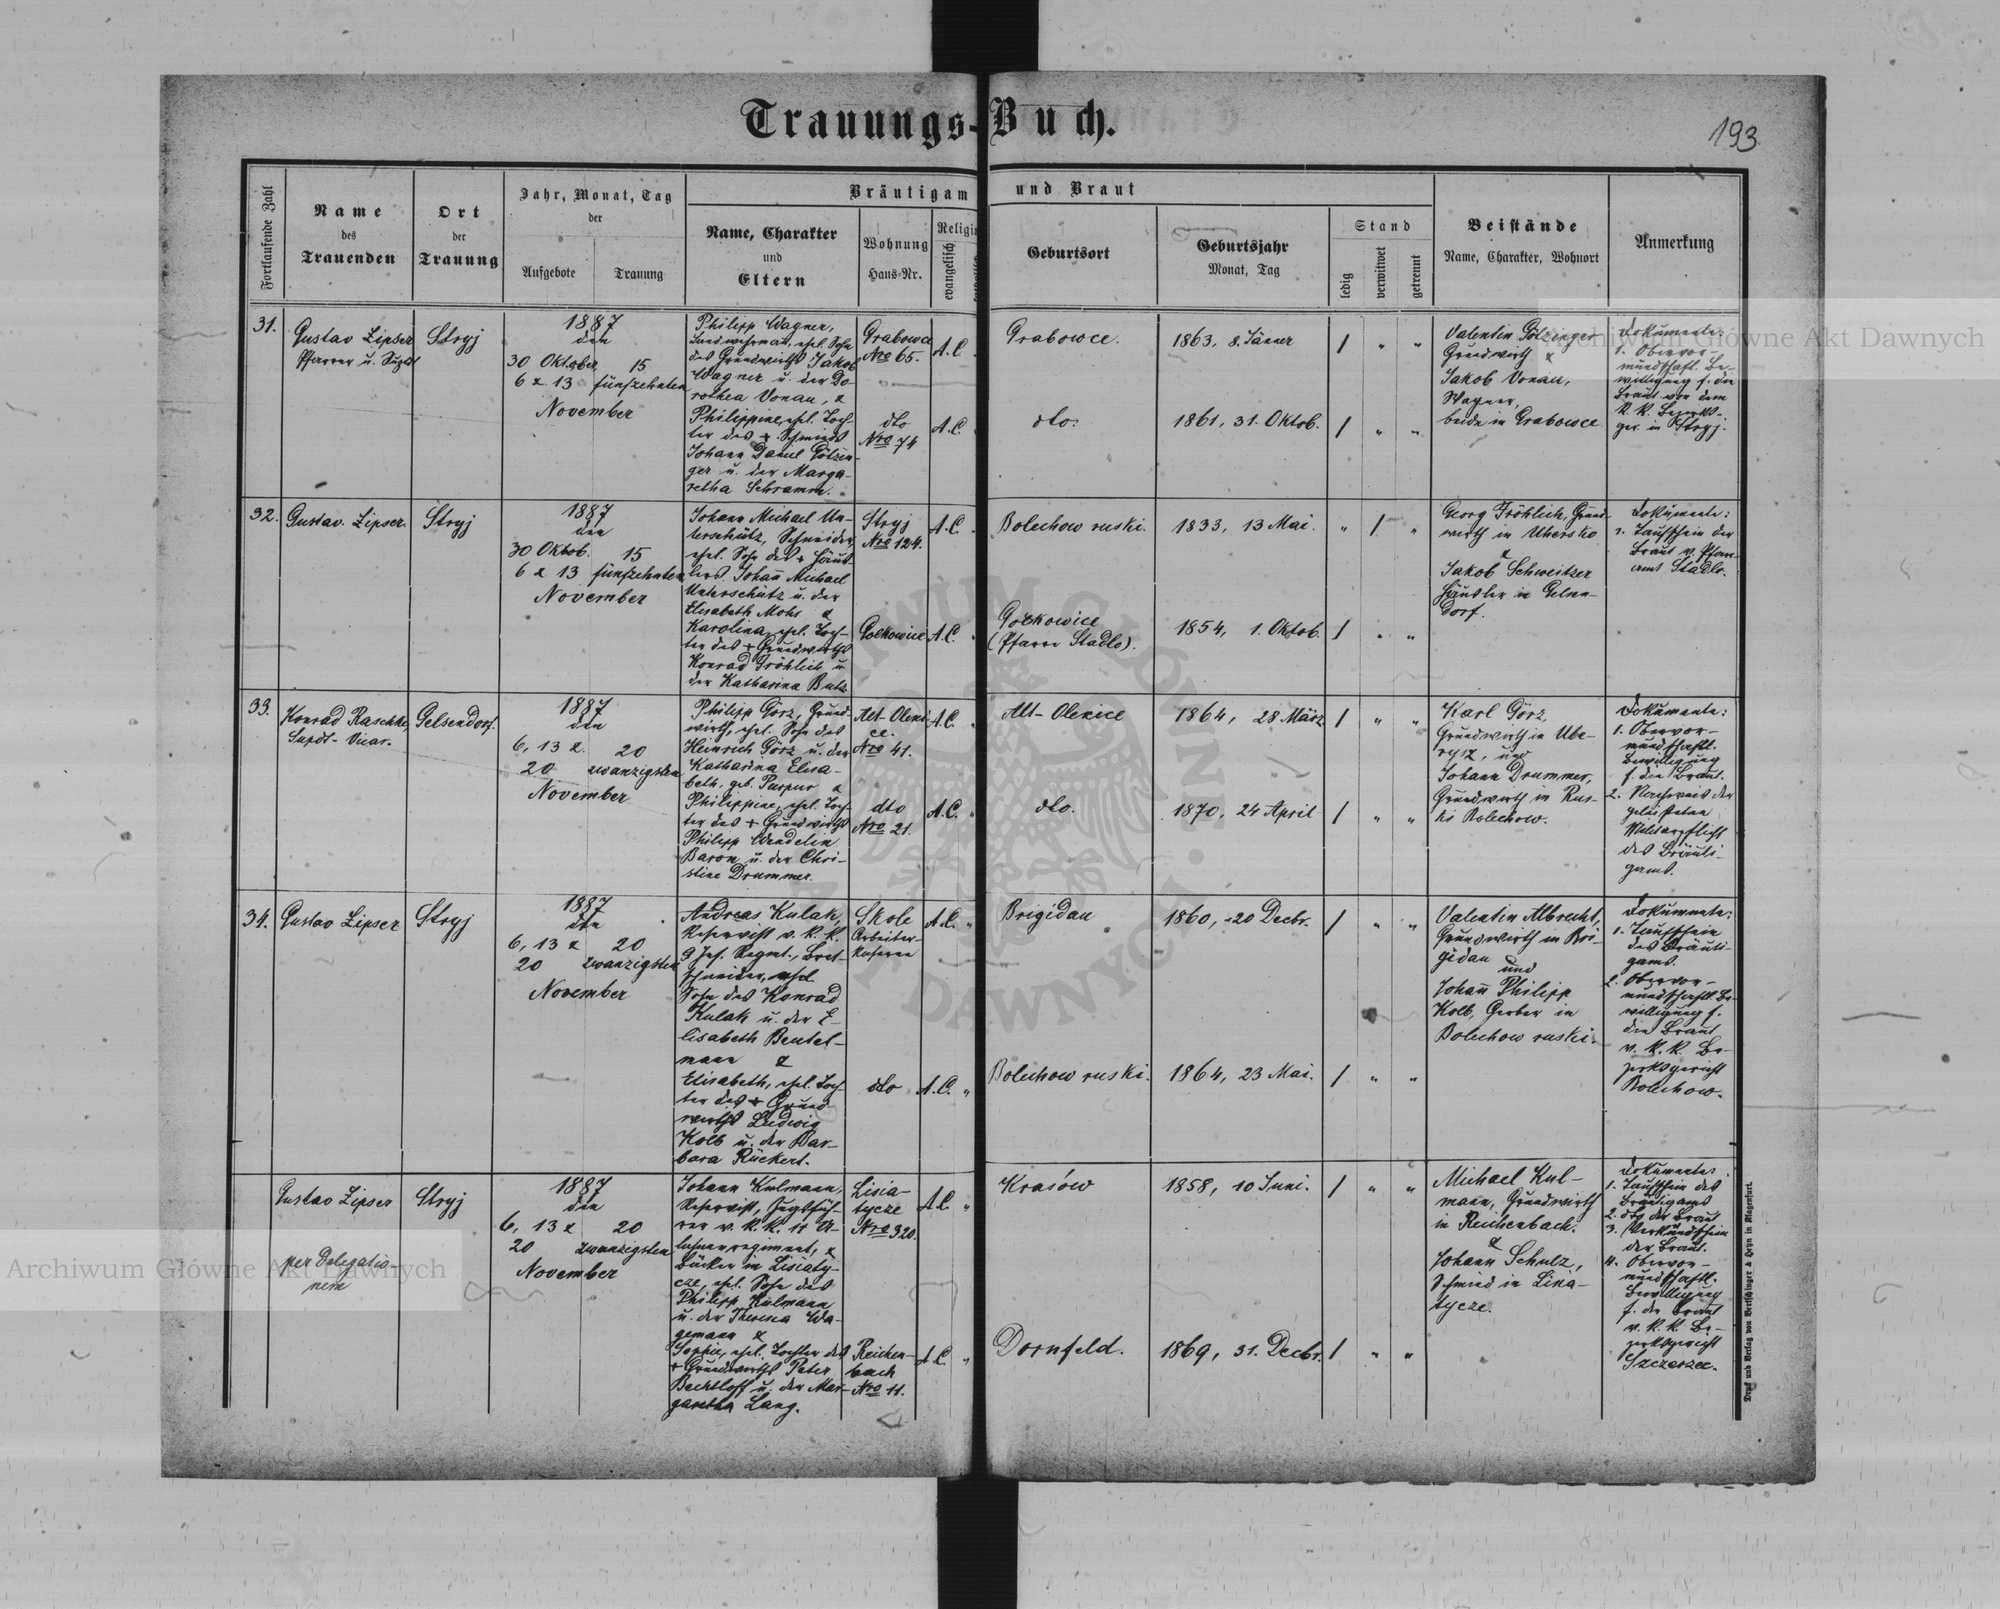 Trauungs-Buch.
193
Fortlaufende Zahl
Name
des
Trauenden
Ort
der
Trauung
Jahr, Monat, Tag
der
Aufgebote
Trauung
Bräutigam und Braut
Name, Charakter
und
Eltern
Wohnung
Haus-Nr.
evangelisch
Geburtsort
Geburtsjahr
Monat, Tag
Stand
ledig
verwitwet
getrennt
Beistände
Name, Charakter, Wohnort
Anmerkung
31.
Gustav Lipser
Pfarrer u.
Stryj
1887
den
30 Oktober 15
6 & 13 fünfzehnten
November
Philipp Wagner,
Landwehrman, ehel. Sohn
des Grundwirths Jakob
Wagner u. der Do-
rothea Vonau, &
Philippine, ehel. Toch-
ter des + Schmieds
Johann Daniel Götzin-
ger u. der Marga-
retha Schramm.
Grabowce
Nro 65.
A.C.
dto
Nro 74
A.C.
Grabowce.
1863, 8. Jänner
/ " "
dto.
1861, 31. Oktob.
/ " "
Valentin Götzinger
Grundwirth &
Jakob Vonau,
Wagner,
beide in Grabowce.
Dokumente:
1. Obervor-
mundschaftl. Be-
willigung f. die
Braut von dem
K. K. Bezirks-
ger. in Stryj.
32.
Gustav Lipser.
Stryj
1887
den
30 Oktob. 15
6 & 13 fünfzehnten
November
Johann Michael Un-
terschütz, Schneider,
ehel. Sohn des + Häus-
lers Johañ Michael
Unterschütz u. der
Elisabeth Mohs &
Karolina, ehel. Toch-
ter des + Grundwirths
Konrad Fröhlich u.
der Katharina Butz
Stryj
Nro 124.
A.C.
Gołkowice
A.C.
Bolechow ruski.
1833, 13 Mai.
" / "
Gołkowice
(Pfarre Stadlo).
1854, 1. Oktob.
/ " "
Georg Fröhlich, Grund-
wirth in Uhersko
&
Jakob Schweitzer
Häusler in Gelsen-
dorf.
Dokumente:
1. Taufschein der
Braut v. Pfarr-
amt Stadlo.
33.
Konrad Raschke,
Supdt- Vicar.
Gelsendorf.
1887
den
6, 13 & 20
20 zwanzigsten
November
Philipp Görz, Grund-
wirth, ehel. Sohn des
Heinrich Görz u. der
Katharina Elisa-
beth, geb. Purpur &
Philippine, ehel. Toch-
ter des + Grundwirths
Philipp Wendelin
Baron u. der Chri-
stine Drummer.
Alt-Oleni-
ce.
Nro 41.
A.C.
dto
Nro 21.
A.C.
Alt-Olenice
1864, 28 März
/ " "
dto.
1870, 24 April
/ " "
Karl Görz,
Grundwirth in Ube-
rysz, und
Johann Drummer,
Grundwirth in Rus-
ki Bolechow.
Dokumente:
1. Obervor-
mundschaftl.
Bewilligung
f. die Braut.
2. Nachweis der
geleisteten
Militärpflicht
des Bräuti-
gams.
34.
Gustav Lipser
Stryj
1887
den
6, 13 & 20
20 zwanzigsten
November
Andreas Kulak,
Reservist v. K. K.
9 Inf. Regmt., Bret-
schneider, ehel.
Sohn des Konrad
Kulak u. der E-
lisabeth Beutel-
mann &
Elisabeth, ehel. Toch-
ter des + Grund-
wirths Ludwig
Kolb u. der Bar-
bara Rückert.
Skole
Arbeiter-
Kaserne
A.C.
dto
A.C.
Brigidau
1860, 20 Decbr.
/ " "
Bolechow ruski.
1864, 23 Mai.
/ " "
Valentin Albrecht,
Grundwirth in Bri-
gidau
und
Johañ Philipp
Kolb, Gerber in
Bolechow ruski.
Dokumente:
1. Taufschein
des Bräuti-
gams.
2. Obervor-
mundschaftl. Be-
willigung f.
die Braut
v. K. K. Be-
zirksgericht
Bolechow.
Gustav Lipser
per Delegatio-
nem
Stryj
1887
den
6, 13 & 20
20 zwanzigsten
November
Johann Kulmann,
Reservist, Zugsfüh-
rer v. K. K. 11 U-
lanenregiment, &
Bäcker in Lisiaty-
cze, ehel. Sohn des
Philipp Kulmann
u. der Theresia Wa-
gemann &
Sophie, ehel. Tochter des
+ Grundwirths Peter
Bechtloff u. der Mar-
garetha Lang.
Lisia-
tycze
Nro 320.
A.C.
Reichen-
bach
Nro 11.
A.C.
Krasów
1858, 10 Juni.
/ " "
Dornfeld.
1869, 31. Decbr.
/ " "
Michael Kul-
mann, Grundwirth
in Reichenbach.
&
Johann Schulz,
Schmied in Lisia-
tycze.
Dokumente:
1. Taufschein des
Bräutigams
2. dto der Braut
3. Verkündschein
der Braut.
4. Obervor-
mundschaftl.
Bewilligung
f. die Braut
v. K. K. Be-
zirksgericht
Szczerzec.
Druck und Verlag von Bertschinger & Heyn in Klagenfurt.
Archiwum Główne Akt Dawnych
Archiwum Główne Akt Dawnych
ARCHIWUM GŁÓWNE AKT DAWNYCH